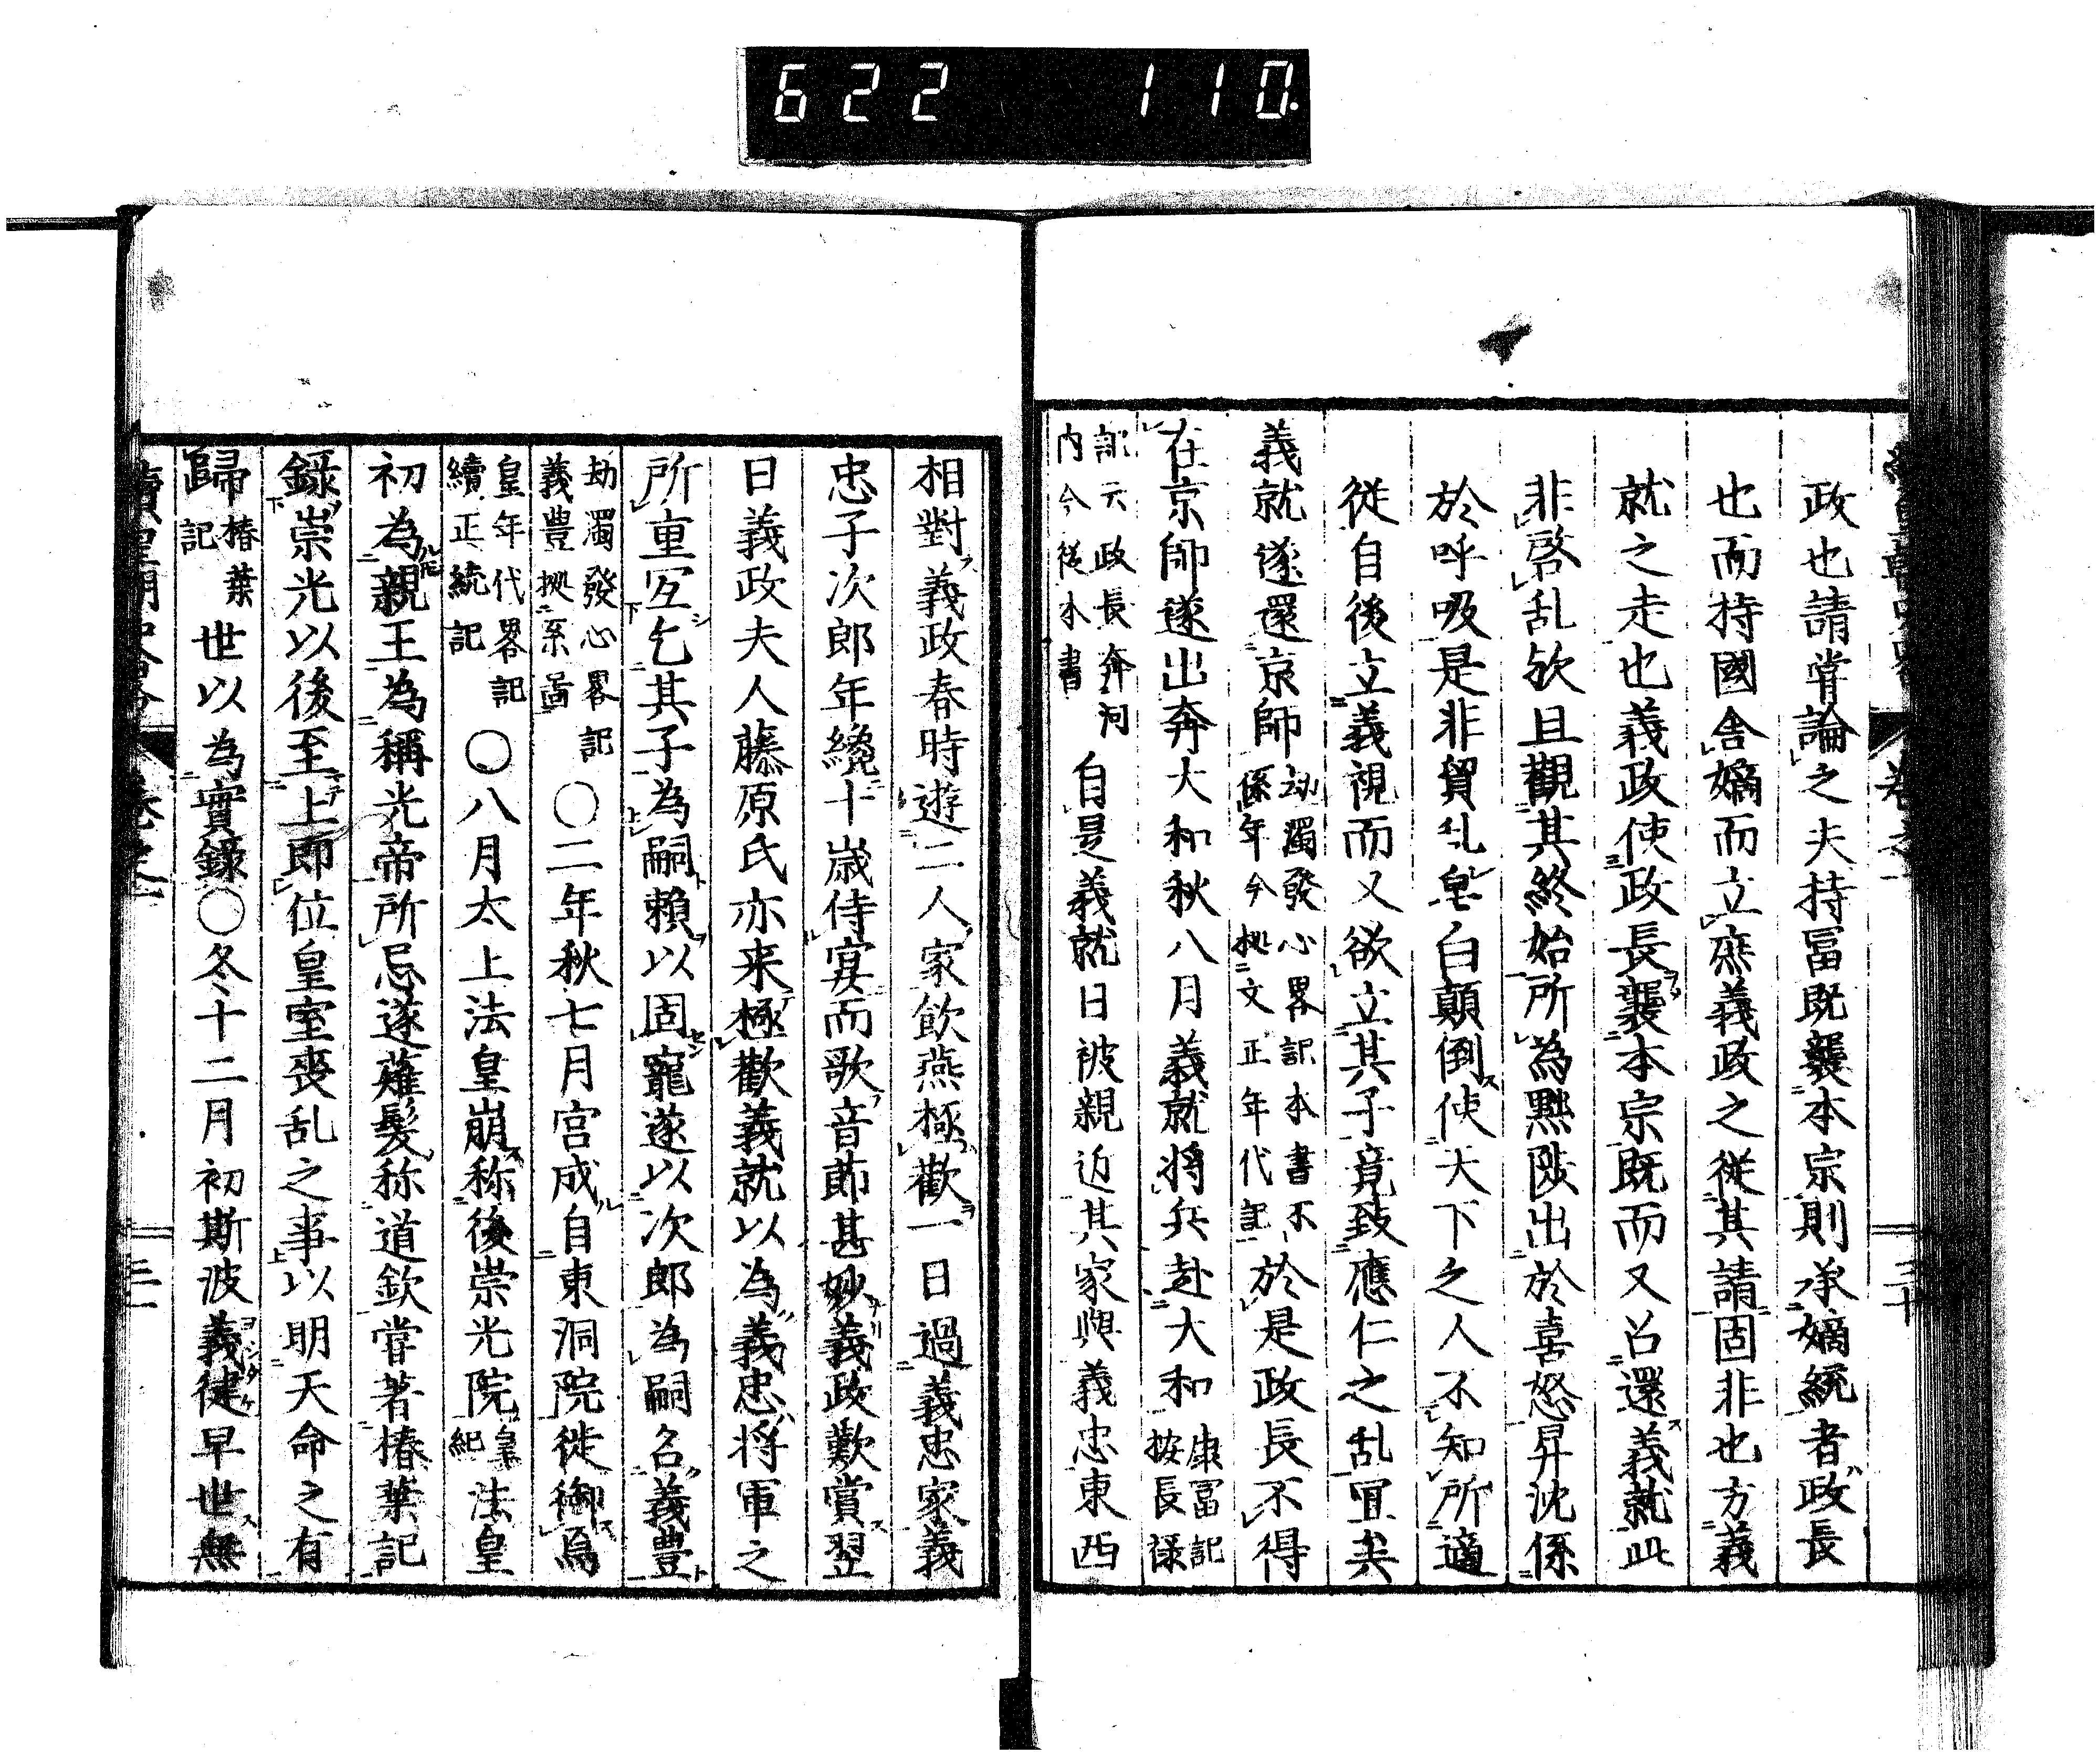 622 110.
政也請嘗論之夫持冨既襲本宗則承嫡統者政長
也而持國舍嫡而立庶義政之從其請固非也方義
就之走也義政使政長襲本宗既而又召還義就此
非啓乱欤且觀其終始所為黜陟出於喜怒昇沈係
於呼吸是非貿乱皂白顛倒使天下之人不知所適
從自後立義視而又欲立其子竟致應仁之乱宜矣
義就遂還京師劫濁發心畧記本書不係年今拠文正年代記於是政長不得
在京師遂出奔大和秋八月義就将兵赴大和康冨記按長禄
記云政長奔河内今從本書自是義就日被親近其家與義忠東西
相對義政春時遊二人家飲燕極歡一日過義忠家義
忠子次郎年纔十歳侍宴而歌音節甚妙義政歎賞翌
日義政夫人藤原氏亦来極歡義就以為義忠将軍之
所重冝乞其子為嗣頼以固寵遂以次郎為嗣名義豊
劫濁發心畧記義豊拠系畄〇二年秋七月宮成自東洞院徙御焉
皇年代畧記續正統記〇八月太上法皇崩称後崇光院皇紀法皇
初為親王為稱光帝所忌遂薙髪称道欽嘗著椿葉記
録崇光以後至上即位皇室喪乱之事以明天命之有
歸椿葉記世以為實録〇冬十二月初斯波義健早世無